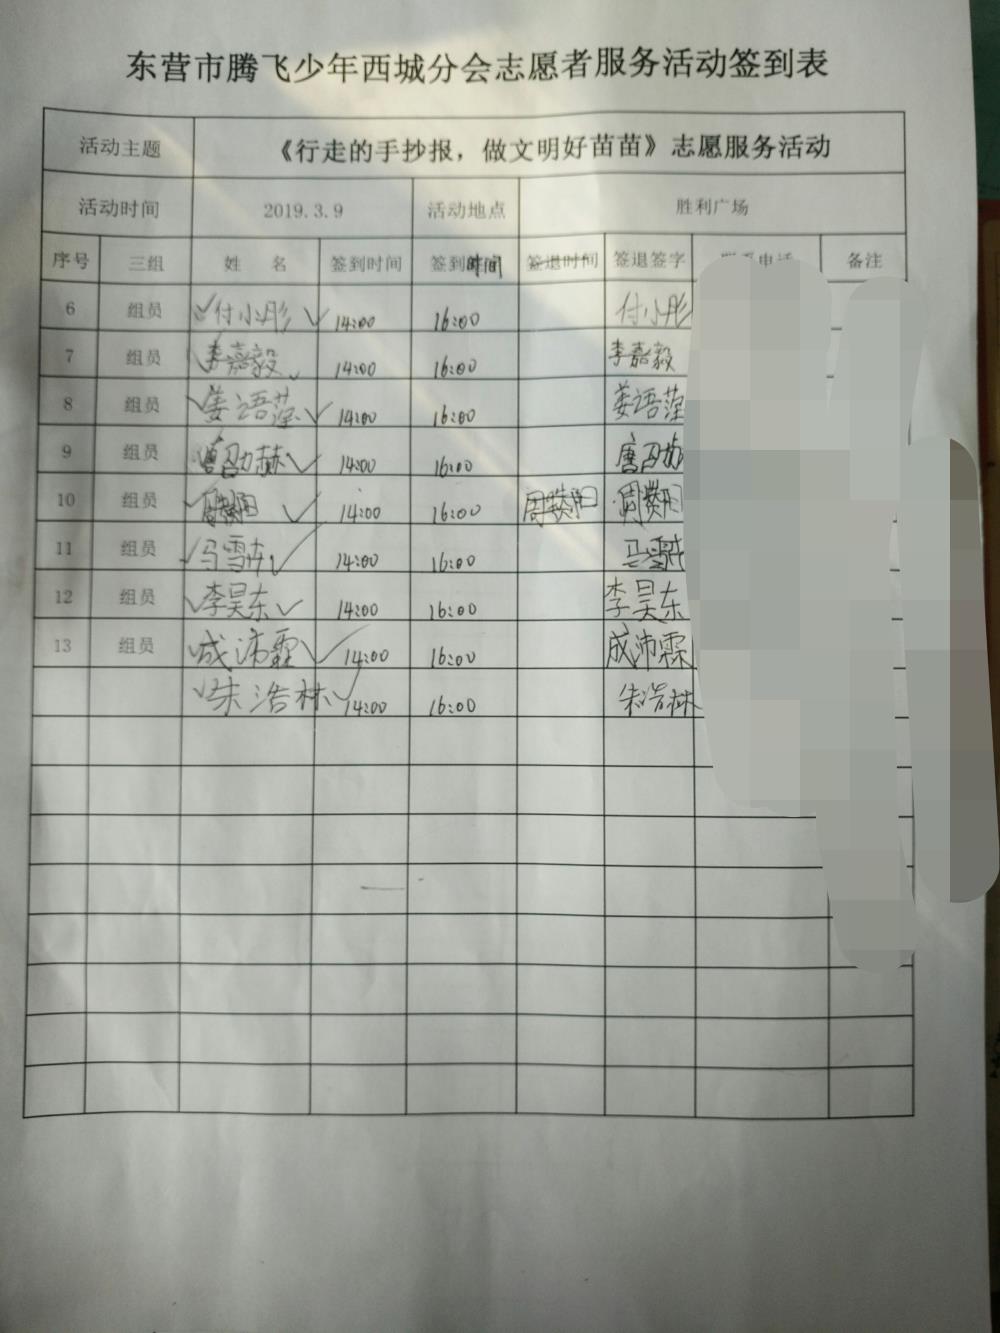 东营市腾飞少年西城分会志愿者服务活动签到表
活动主题 《行走的手抄报，做文明好苗苗》志愿服务活动
活动时间 2019.3.9 活动地点 胜利广场
序号 三组 姓 名 签到时间 签到时间 签退时间 签退签字 备注
6 组员 付小彤 14:00 16:00 付小彤
7 组员 李嘉毅 14:00 16:00 李嘉毅
8 组员 姜语滢 14:00 16:00 姜语滢
9 组员 14:00 16:00
10 组员 14:00 16:00
11 组员 14:00 16:00
12 组员 李昊东 14:00 16:00 李昊东
13 组员 成沛霖 14:00 16:00 成沛霖
朱浩林 14:00 16:00 朱浩林